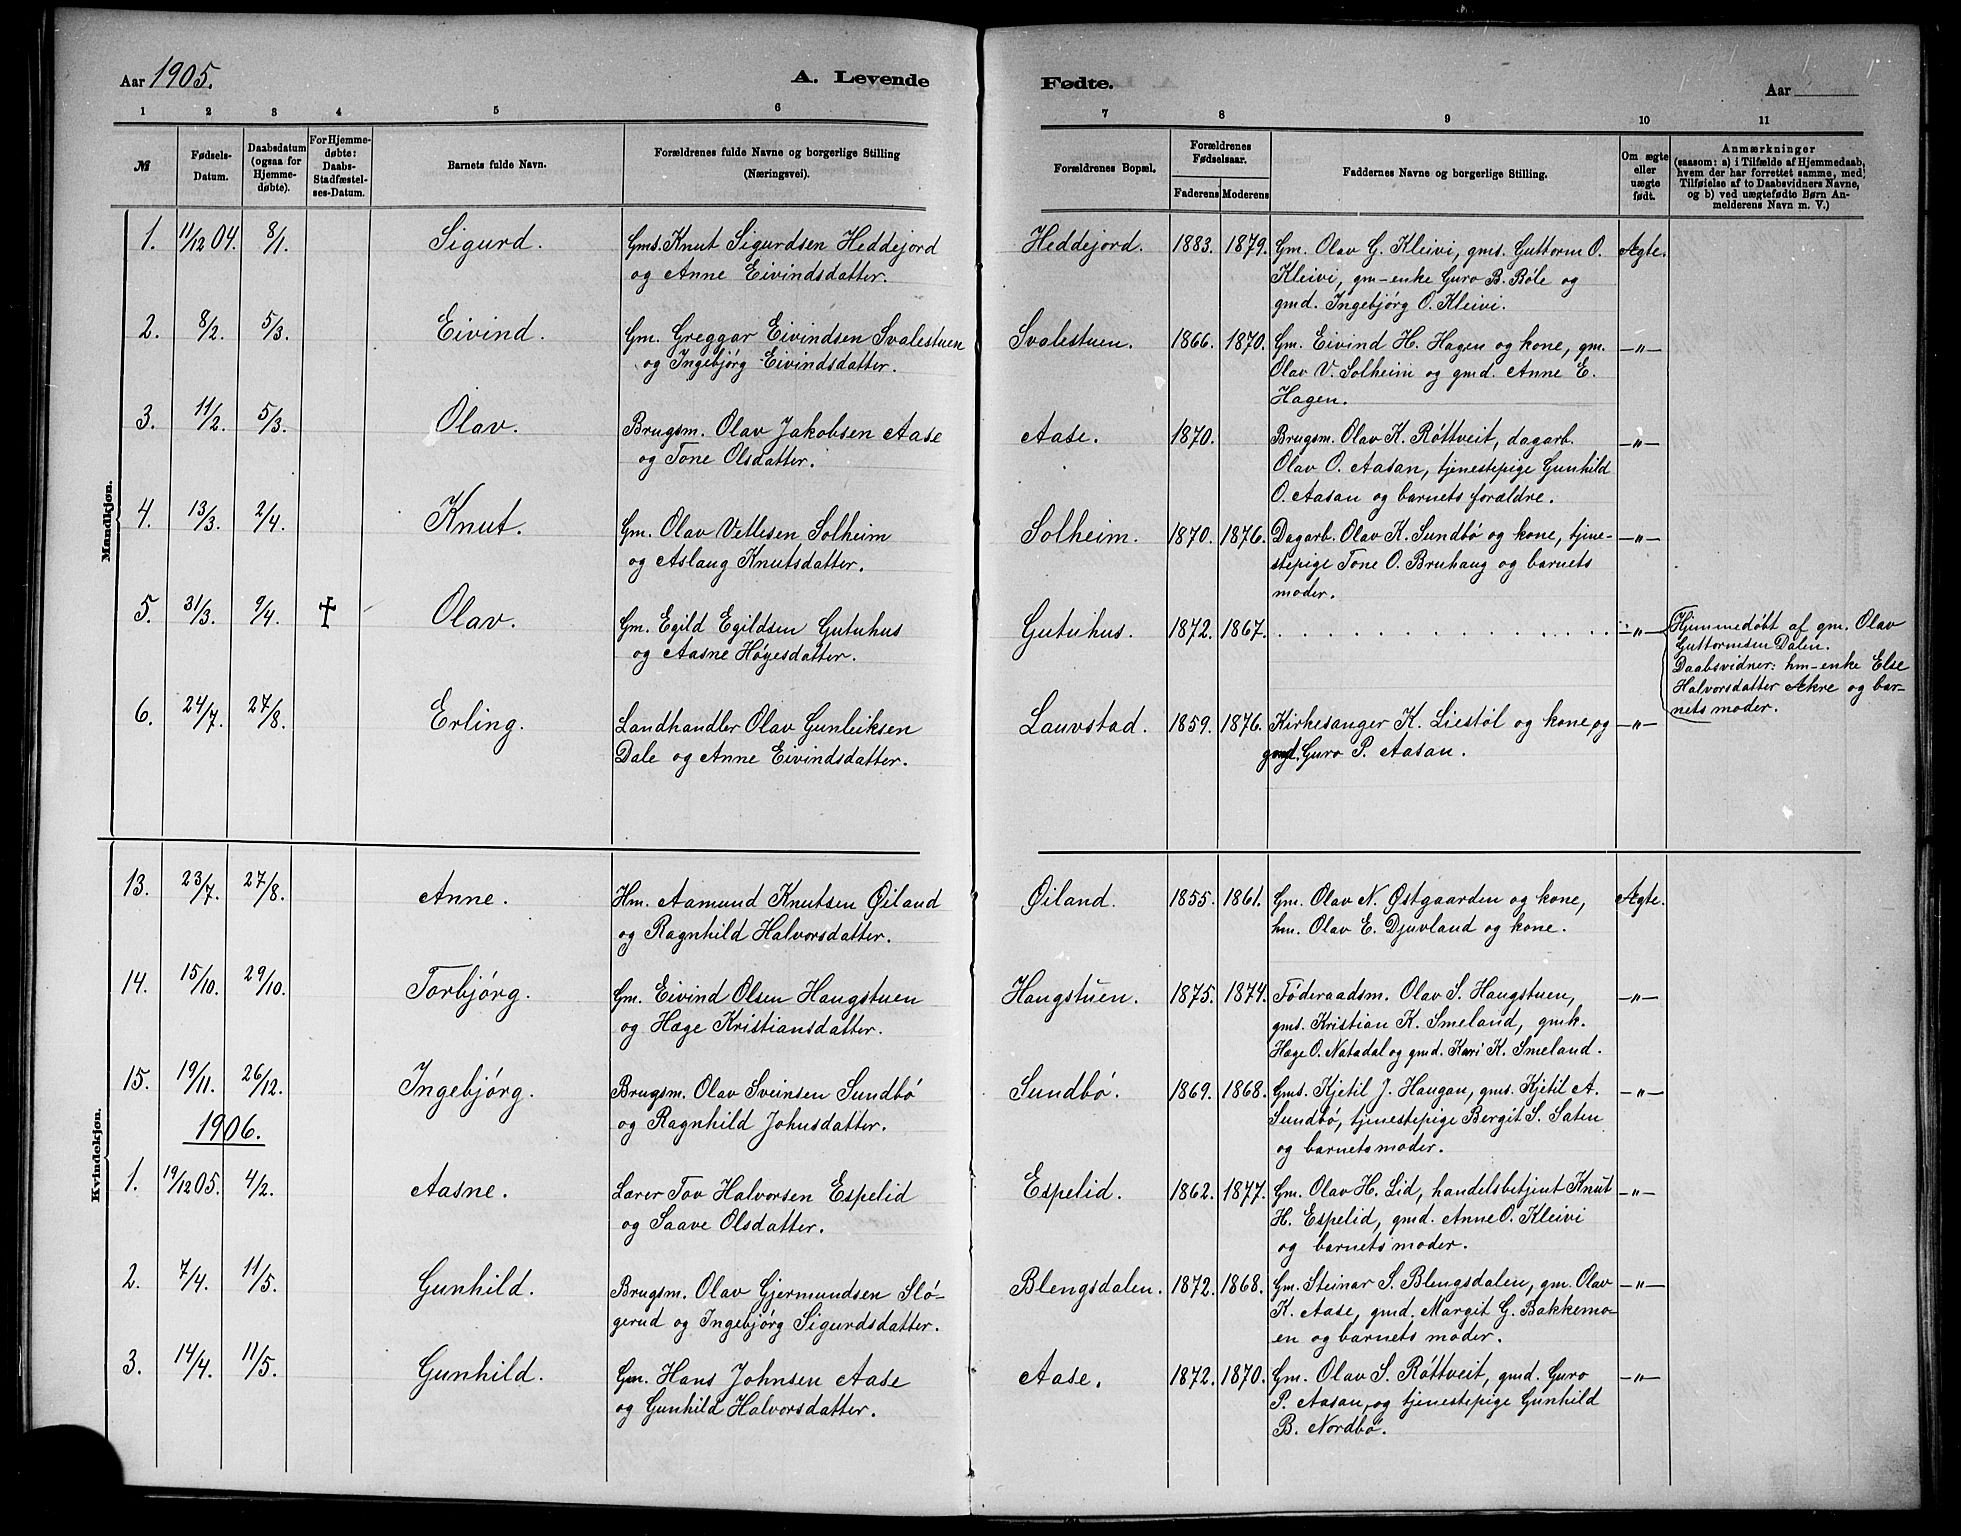 Aar 1905.
A. Levende
Fødte.
Aar
1 2 3 4 5 6 7 8 9 10 11
№
Fødsels-
Datum.
Daabsdatum
(ogsaa for
Hjemme-
døbte).
For Hjemme-
døbte:
Daabs-
Stadfæstel-
ses-Datum.
Barnets fulde Navn.
Forældrenes fulde Navne og borgerlige Stilling
(Næringsvei).
Forældrenes Bopæl.
Forældrenes
Fødselsaar.
Faderens Moderens
Faddernes Navne og borgerlige Stilling.
Om ægte
eller
uægte
født.
Anmærkninger
(saasom: a) i Tilfælde af Hjemmedaab,
hvem der har forrettet samme, med
Tilføielse af to Daabsvidners Navne,
og b) ved uægtefødte Børn An-
melderens Navn m. V.)
Mandkjøn.
1. 11/12 04. 8/1. Sigurd. Gms. Knut Sigurdsen Heddejord Heddejord. 1883. 1879. Gm. Olav G. Kleivi, gms. Guttorm O. Ægte.
og Anne Eivindsdatter. Kleivi, gm-enke Guro B. Bøle og
gmd. Ingebjörg O. Kleivi.
2. 8/2. 5/3. Eivind. Gm. Greggar Eivindsen Svalestuen Svalestuen. 1866. 1870. Gm. Eivind H. Hagen og kone, gm. —"—
og Ingebjörg Eivindsdatter. Olav V. Solheim og gmd. Anne E.
Hagen.
3. 11/2. 5/3. Olav. Brugsm. Olav Jakobsen Aase Aase. 1870. Brugsm. Olav K. Röttveit, dagarb. —"—
og Tone Olsdatter. Olav O. Aasan, tjenestepige Gunhild
O. Aasan og barnets forældre.
4. 13/3. 2/4. Knut. Gm. Olav Vetlesen Solheim Solheim. 1870. 1876. Dagarb. Olav K. Sundbö og kone, tjene- —"—
og Aslaug Knutsdatter. stepige Tone O. Bruhaug og barnets
moder.
5. 31/3. 9/4. † Olav. Gm. Egild Egildsen Gutuhus Gutuhus. 1872. 1867. . . . . . . . . . . . . . . —"— Hjemmedöbt af gm. Olav
og Aasne Höyesdatter. Guttormsen Dalen.
Daabsvidner: hm-enke Else
Halvorsdatter Ækre og bar-
nets moder.
6. 24/7. 27/8. Erling. Landhandler Olav Gunleiksen Lauvstad. 1859. 1876. Kirkesanger K. Liestöl og kone, og —"—
Dale og Anne Eivindsdatter. gmd. Guro P. Aasan.
Kvindekjøn.
13. 23/7. 27/8. Anne. Hm. Aamund Knutsen Øiland Øiland. 1855. 1861. Gm. Olav N. Østgaarden og kone, Ægte.
og Ragnhild Halvorsdatter. hm. Olav E. Djuvland og kone.
14. 15/10. 29/10. Torbjörg. Gm. Eivind Olsen Haugstuen Haugstuen. 1875. 1874. Föderaadsm. Olav S. Haugstuen, —"—
og Hæge Kristiansdatter. gms. Kristian K. Smeland, gmk.
Hæge O. Natadal og gmd. Kari K. Smeland.
15. 19/11. 26/12. Ingebjörg. Brugsm. Olav Sveinsen Sundbö Sundbö. 1869. 1868. Gms. Kjetil J. Haugan, gms. Kjetil A. —"—
og Ragnhild Johnsdatter. Sundbö, tjenestepige Bergit S. Saten
og barnets moder.
1906.
1. 19/12 05. 4/2. Aasne. Lærer Tov Halvorsen Espelid Espelid. 1862. 1877. Gm. Olav H. Lid, handelsbetjent Knut —"—
og Saave Olsdatter. H. Espelid, gmd. Anne O. Kleivi
og barnets moder.
2. 7/4. 11/5. Gunhild. Brugsm. Olav Gjermundsen Slö- Blengsdalen. 1872. 1868. Gm. Steinar S. Blengsdalen, gm. Olav —"—
gerud og Ingebjörg Sigurdsdatter. K. Aase, gmd. Margit G. Bakkemo-
en og barnets moder.
3. 14/4. 11/5. Gunhild. Gm. Hans Johnsen Aase Aase. 1872. 1870. Gm. Olav S. Röttveit, gmd. Guro —"—
og Gunhild Halvorsdatter. P. Aasan, og tjenestepige Gunhild
B. Nordbö.